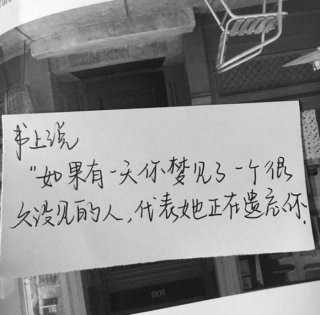 书上说
“如果有一天你梦见了一个很
久没见的人，代表她正在遗忘你.